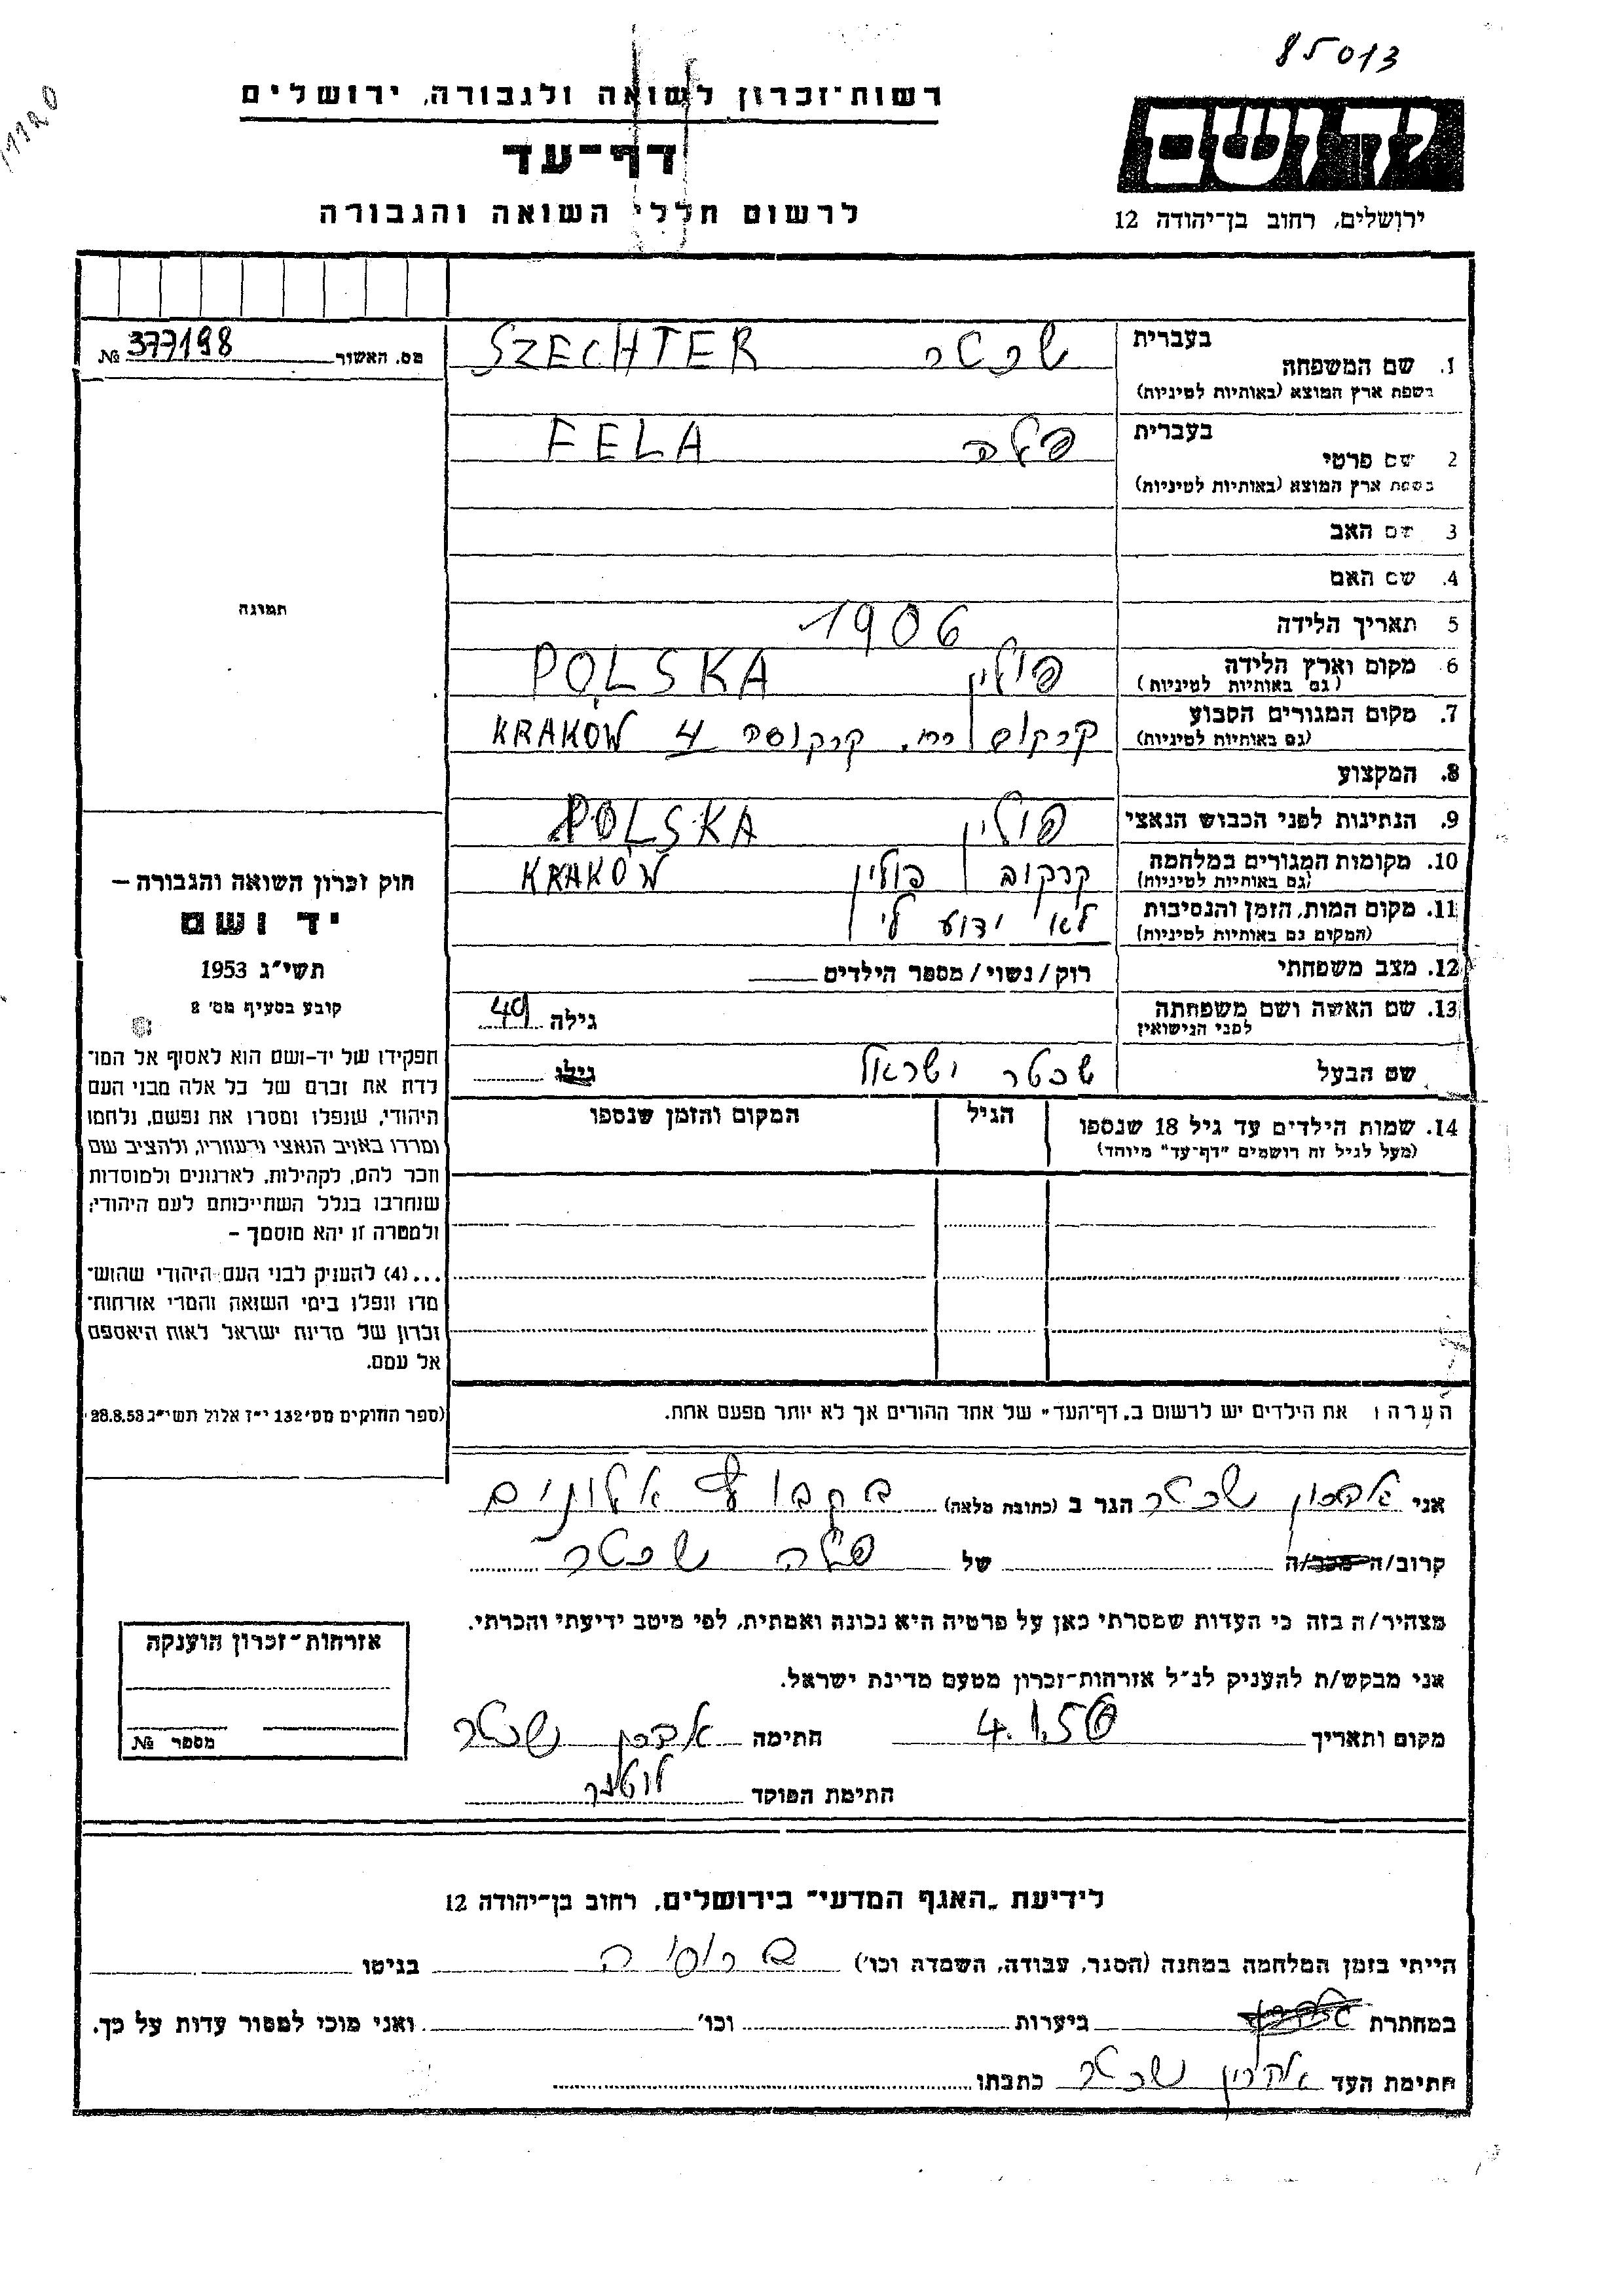 85013
רשות־זכרון לשואה ולגבורה, ירושלים
דף־עד
לרשום חללי השואה והגבורה
יד ושם
ירושלים, רחוב בן־יהודה 12
מס. האשור № 377198
תמונה
חוק זכרון השואה והגבורה –
יד ושם
תשי״ג 1953
קובע בסעיף מס׳ 8
תפקידו של יד-ושם הוא לאסוף אל המו־
לדת את זכרם של כל אלה מבני העם
היהודי, שנפלו ומסרו את נפשם, נלחמו
ומרדו באויב הנאצי ובעוזריו, ולהציב שם
וזכר להם, לקהילות, לארגונים ולמוסדות
שנחרבו בגלל השתייכותם לעם היהודי;
ולמטרה זו יהא מוסמך –
...(4) להעניק לבני העם היהודי שהוש־
מדו ונפלו בימי השואה והמרי אזרחות־
זכרון של מדינת ישראל לאות היאספם
אל עמם.
(ספר החוקים מס׳ 132 י״ז אלול תשי״ג 28.8.53)
1. שם המשפחה בעברית שכטר SZECHTER
בשפת ארץ המוצא (באותיות לטיניות)
2 שם פרטי בעברית פלה FELA
בשפת ארץ המוצא (באותיות לטיניות)
3 שם האב
4. שם האם
5 תאריך הלידה 1906
6 מקום וארץ הלידה פולין POLSKA
(גם באותיות לטיניות)
7. מקום המגורים הקבוע קרקוב רח. קרקוסה 4 KRAKÓW
(גם באותיות לטיניות)
8. המקצוע
9. הנתינות לפני הכבוש הנאצי פולין POLSKA
10. מקומות המגורים במלחמה קרקוב פולין KRAKÓW
(גם באותיות לטיניות)
11. מקום המות, הזמן והנסיבות לא ידוע לי
(המקום גם באותיות לטיניות)
12. מצב משפחתי רוק/נשוי/מספר הילדים
13. שם האשה ושם משפחתה גילה 49
לפני הנישואין
שם הבעל שכטר ישראל גילו
14. שמות הילדים עד גיל 18 שנספו הגיל המקום והזמן שנספו
(מעל לגיל זה רושמים "דף־עד" מיוחד)
הערה: את הילדים יש לרשום ב„דף־העד״ של אחד ההורים אך לא יותר מפעם אחת.
אני אהרון שכטר הגר ב (כתובת מלאה) בקבוץ אלונים
קרוב/ה מכר/ה של פלה שכטר
מצהיר/ה בזה כי העדות שמסרתי כאן על פרטיה היא נכונה ואמתית, לפי מיטב ידיעתי והכרתי.
אני מבקש/ת להעניק לנ״ל אזרחות־זכרון מטעם מדינת ישראל.
מקום ותאריך 4.1.56 חתימה אהרן שכטר
חתימת הפוקד
אזרחות־זכרון הוענקה
מספר №
לידיעת „האגף המדעי״ בירושלים, רחוב בן־יהודה 12
הייתי בזמן המלחמה במחנה (הסגר, עבודה, השמדה וכו׳) ברוסיה בגיטו
במחתרת ביערות וכו׳ ואני מוכן למסור עדות על כך.
חתימת העד אהרון שכטר כתבתו